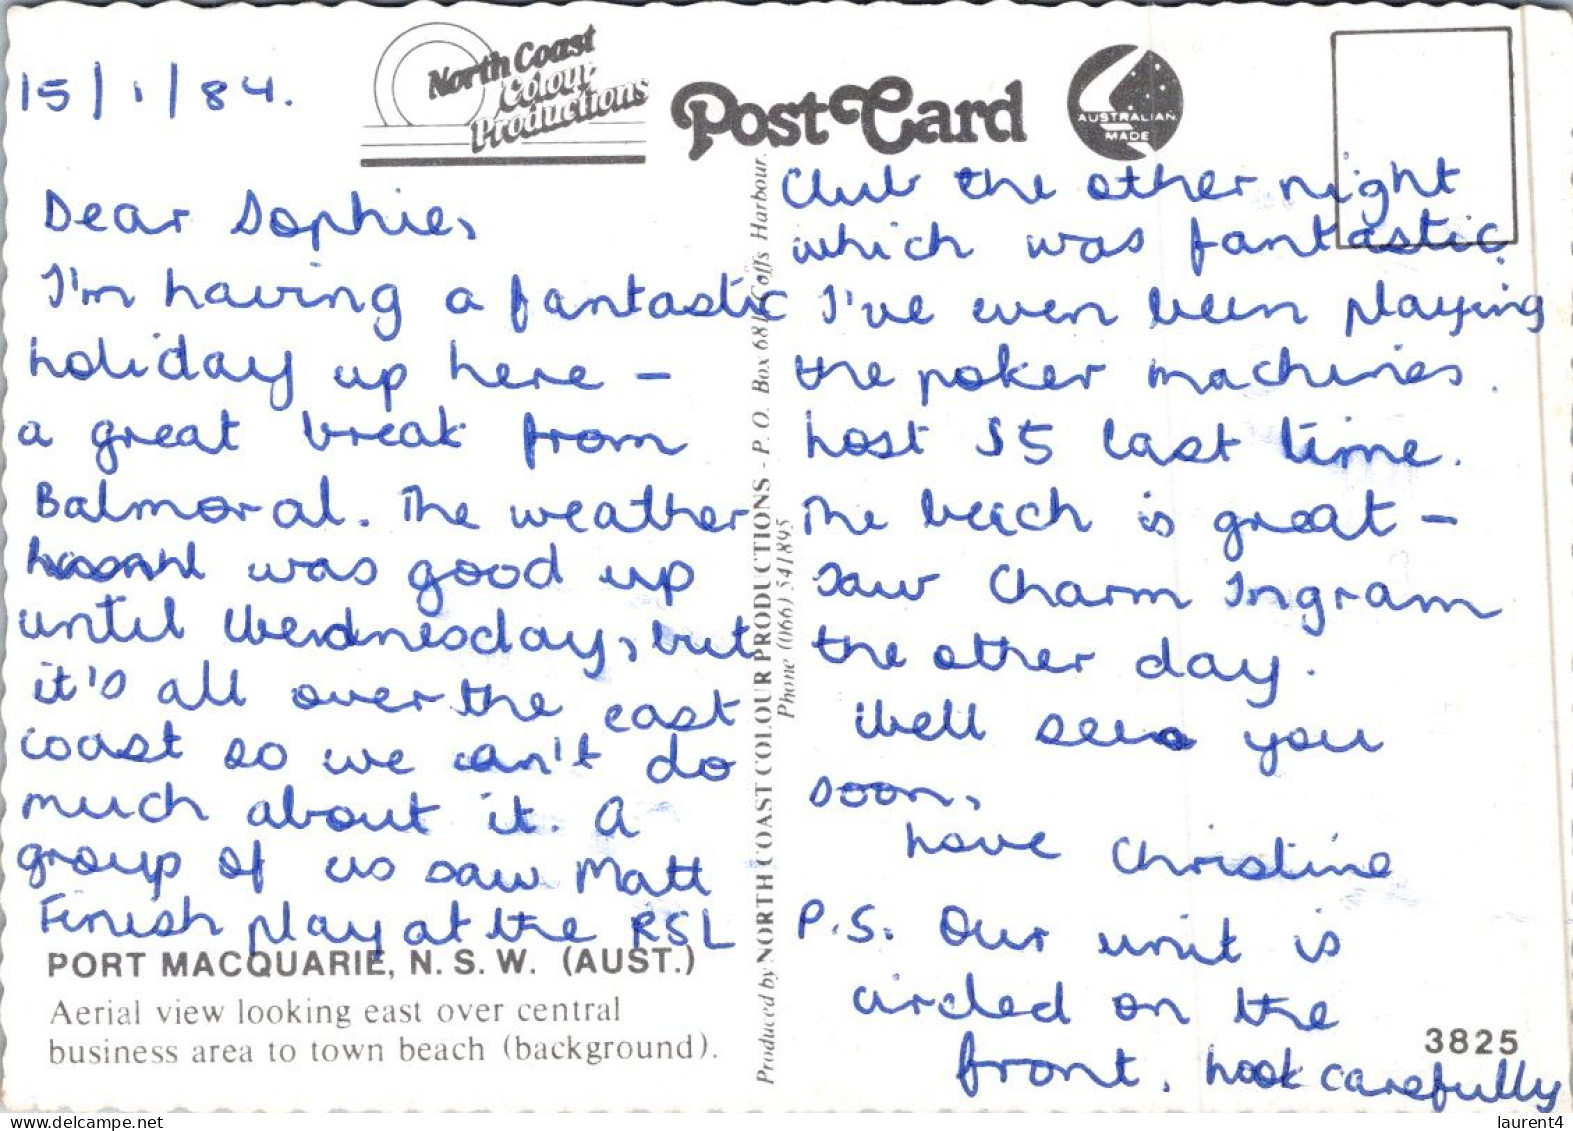 15/1/84.
North Coast
Colour
Productions
PostCard
AUSTRALIAN
MADE
Dear Sophie,
I'm having a fantastic
holiday up here –
a great break from
Balmoral. The weather
was good up
until Wednesday, but
it's all over the east
coast so we can't do
much about it. A
group of us saw Matt
Finish play at the RSL
PORT MACQUARIE, N.S.W. (AUST.)
Aerial view looking east over central
business area to town beach (background).
Produced by NORTH COAST COLOUR PRODUCTIONS - P. O. Box 681, Coffs Harbour.
Phone (066) 541895
Club the other night
which was fantastic.
I've even been playing
the poker machines.
Lost $5 last time.
The beach is great –
saw Charm Ingram
the other day.
Well see you
soon,
Love Christine
P.S. Our unit is
circled on the
front. Look carefully
3825
laurent4